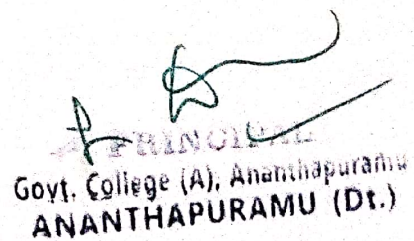 PRINCIPAL
Govt. College (A), Ananthapuramu
ANANTHAPURAMU (Dt.)